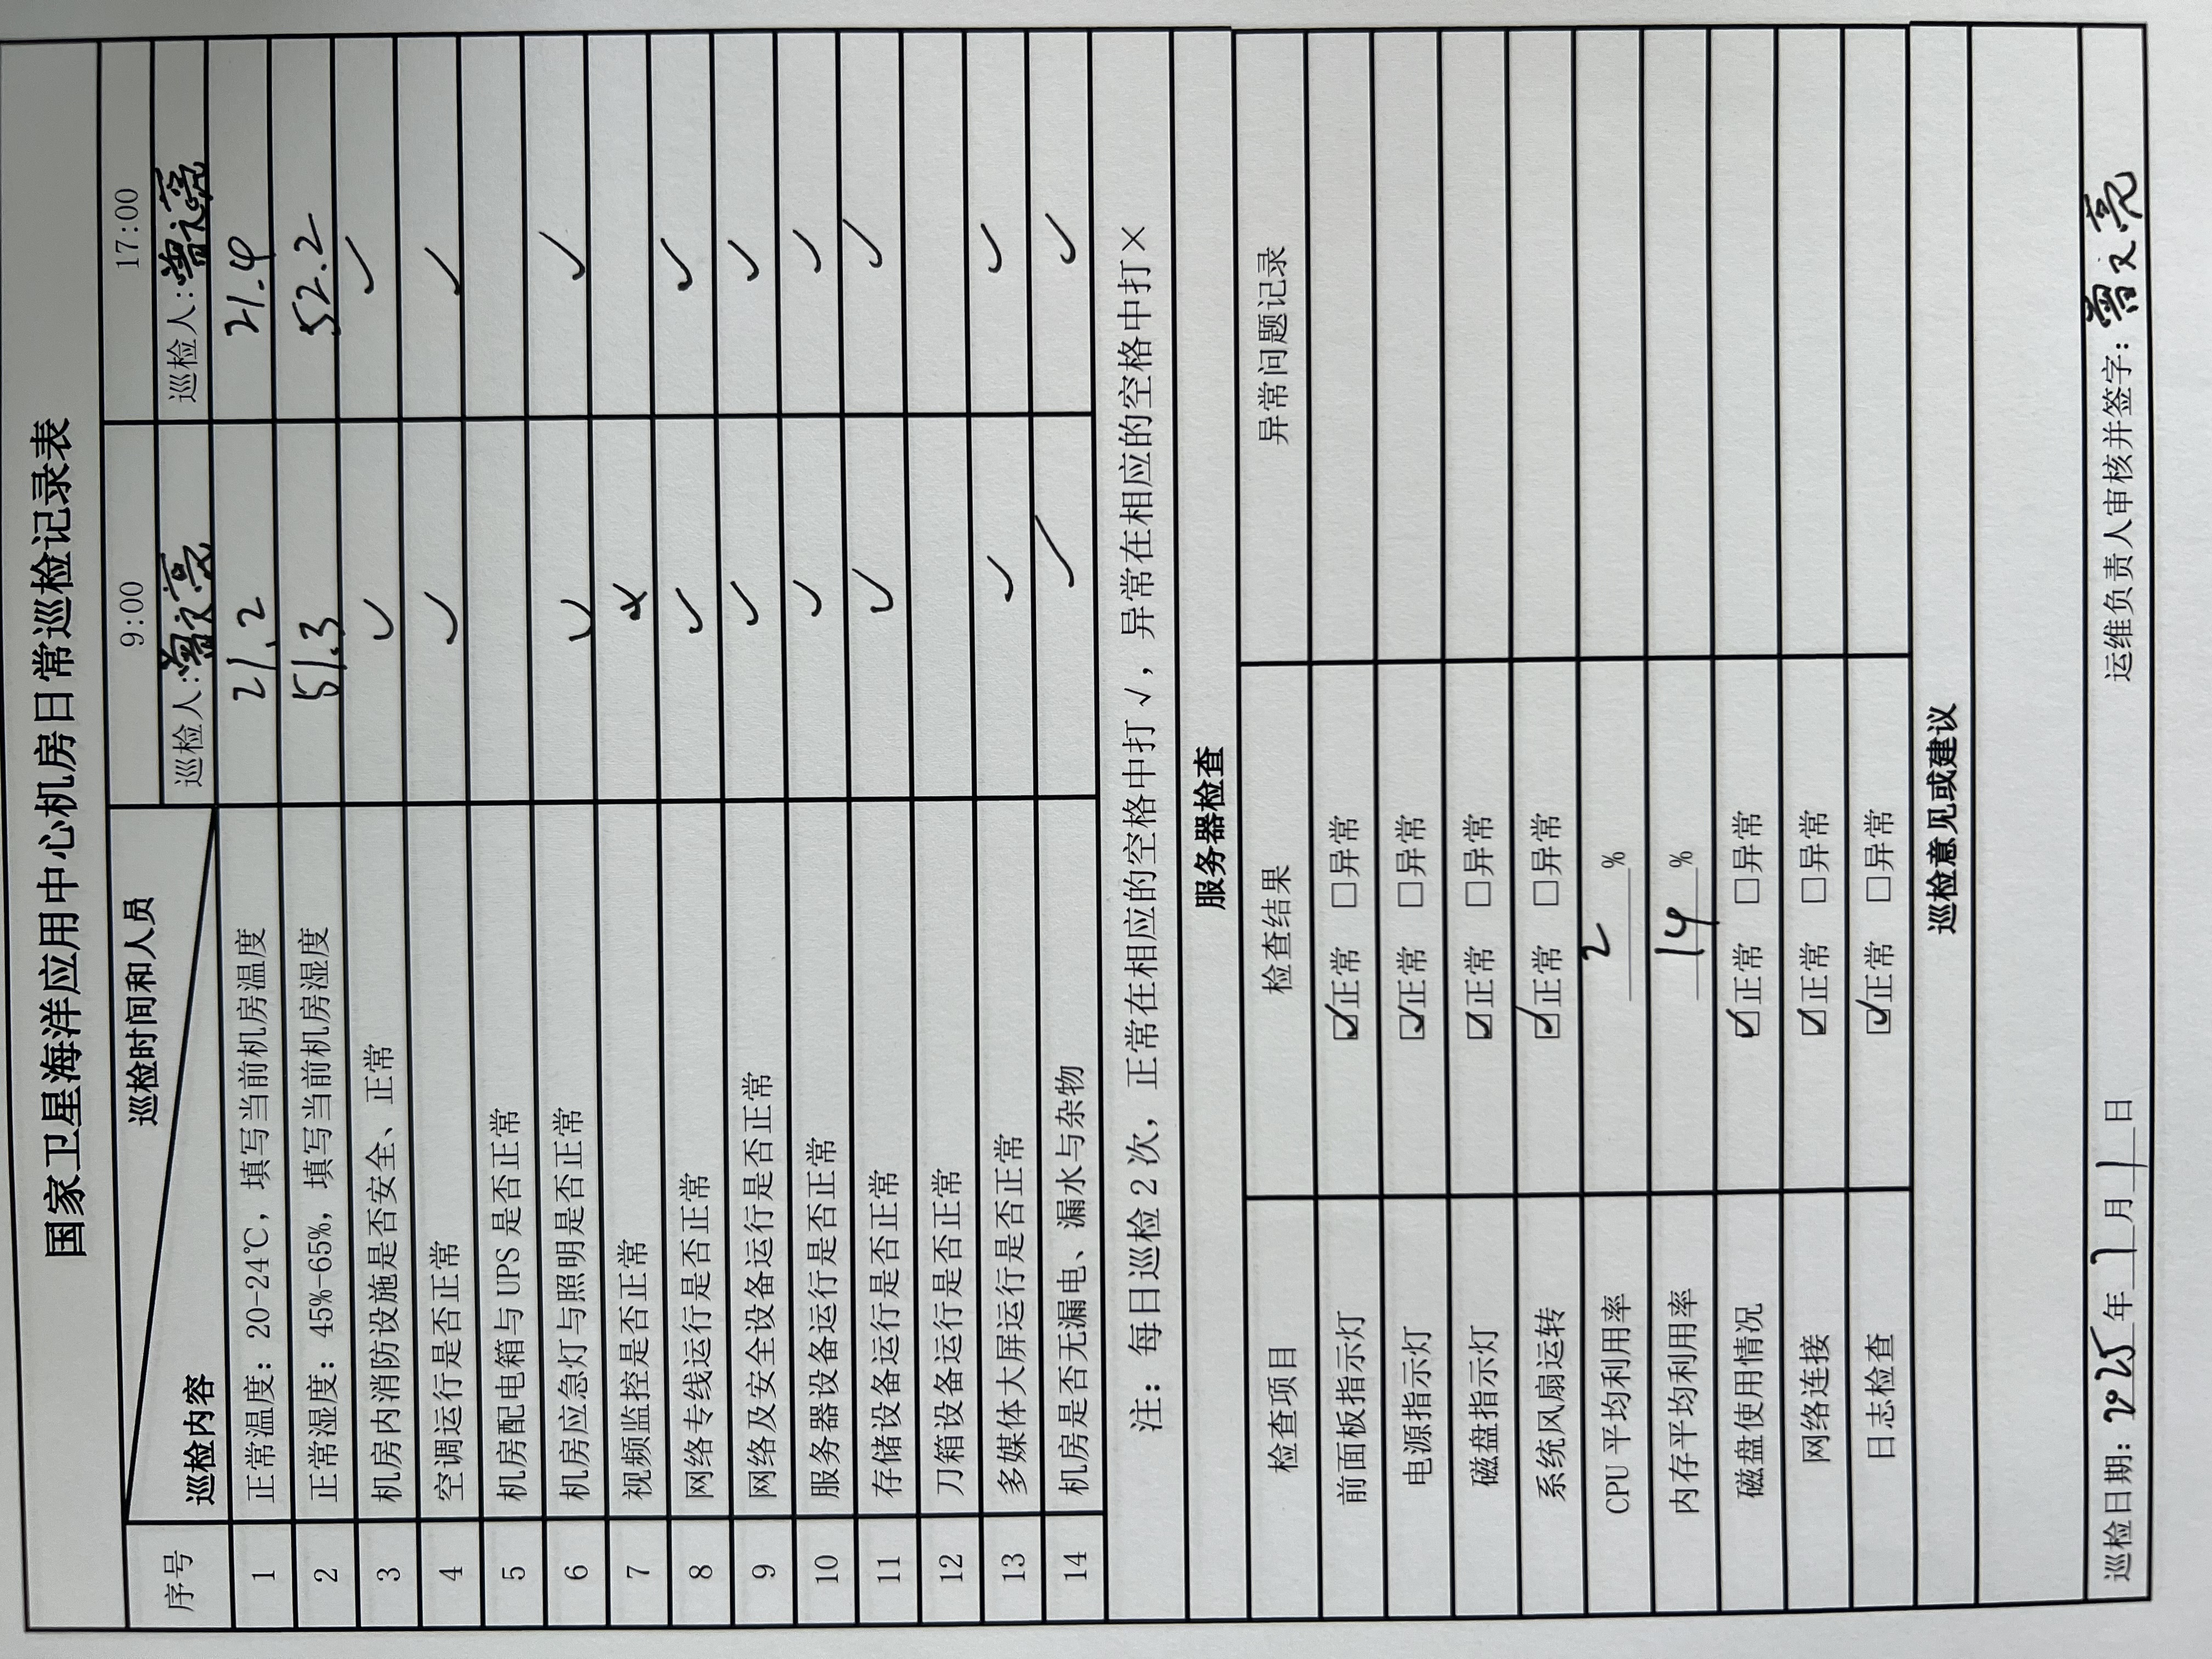 国家卫星海洋应用中心机房日常巡检记录表
序号 巡检内容 巡检时间和人员 9:00 17:00
巡检人:曾文亮 巡检人:曾文亮
1 正常温度：20-24℃，填写当前机房温度 21.2 21.4
2 正常湿度：45%-65%，填写当前机房湿度 51.3 52.2
3 机房内消防设施是否安全、正常 ✓ ✓
4 空调运行是否正常 ✓ ✓
5 机房配电箱与 UPS 是否正常
6 机房应急灯与照明是否正常 ✓ ✓
7 视频监控是否正常 ×
8 网络专线运行是否正常 ✓ ✓
9 网络及安全设备运行是否正常 ✓ ✓
10 服务器设备运行是否正常 ✓ ✓
11 存储设备运行是否正常 ✓ ✓
12 刀箱设备运行是否正常
13 多媒体大屏运行是否正常 ✓ ✓
14 机房是否无漏电、漏水与杂物 ✓ ✓
注：每日巡检 2 次，正常在相应的空格中打 √，异常在相应的空格中打×
服务器检查
检查项目 检查结果 异常问题记录
前面板指示灯 ☑正常 □异常
电源指示灯 ☑正常 □异常
磁盘指示灯 ☑正常 □异常
系统风扇运转 ☑正常 □异常
CPU 平均利用率 2 %
内存平均利用率 14 %
磁盘使用情况 ☑正常 □异常
网络连接 ☑正常 □异常
日志检查 ☑正常 □异常
巡检意见或建议
巡检日期：2025年7月1日 运维负责人审核并签字：曾文亮